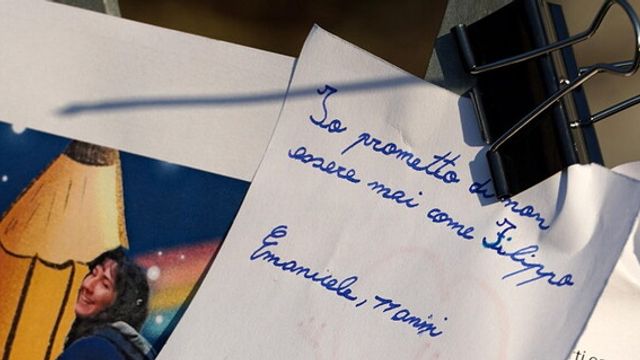 Io prometto di non
essere mai come Filippo
Emanuele, Nanni